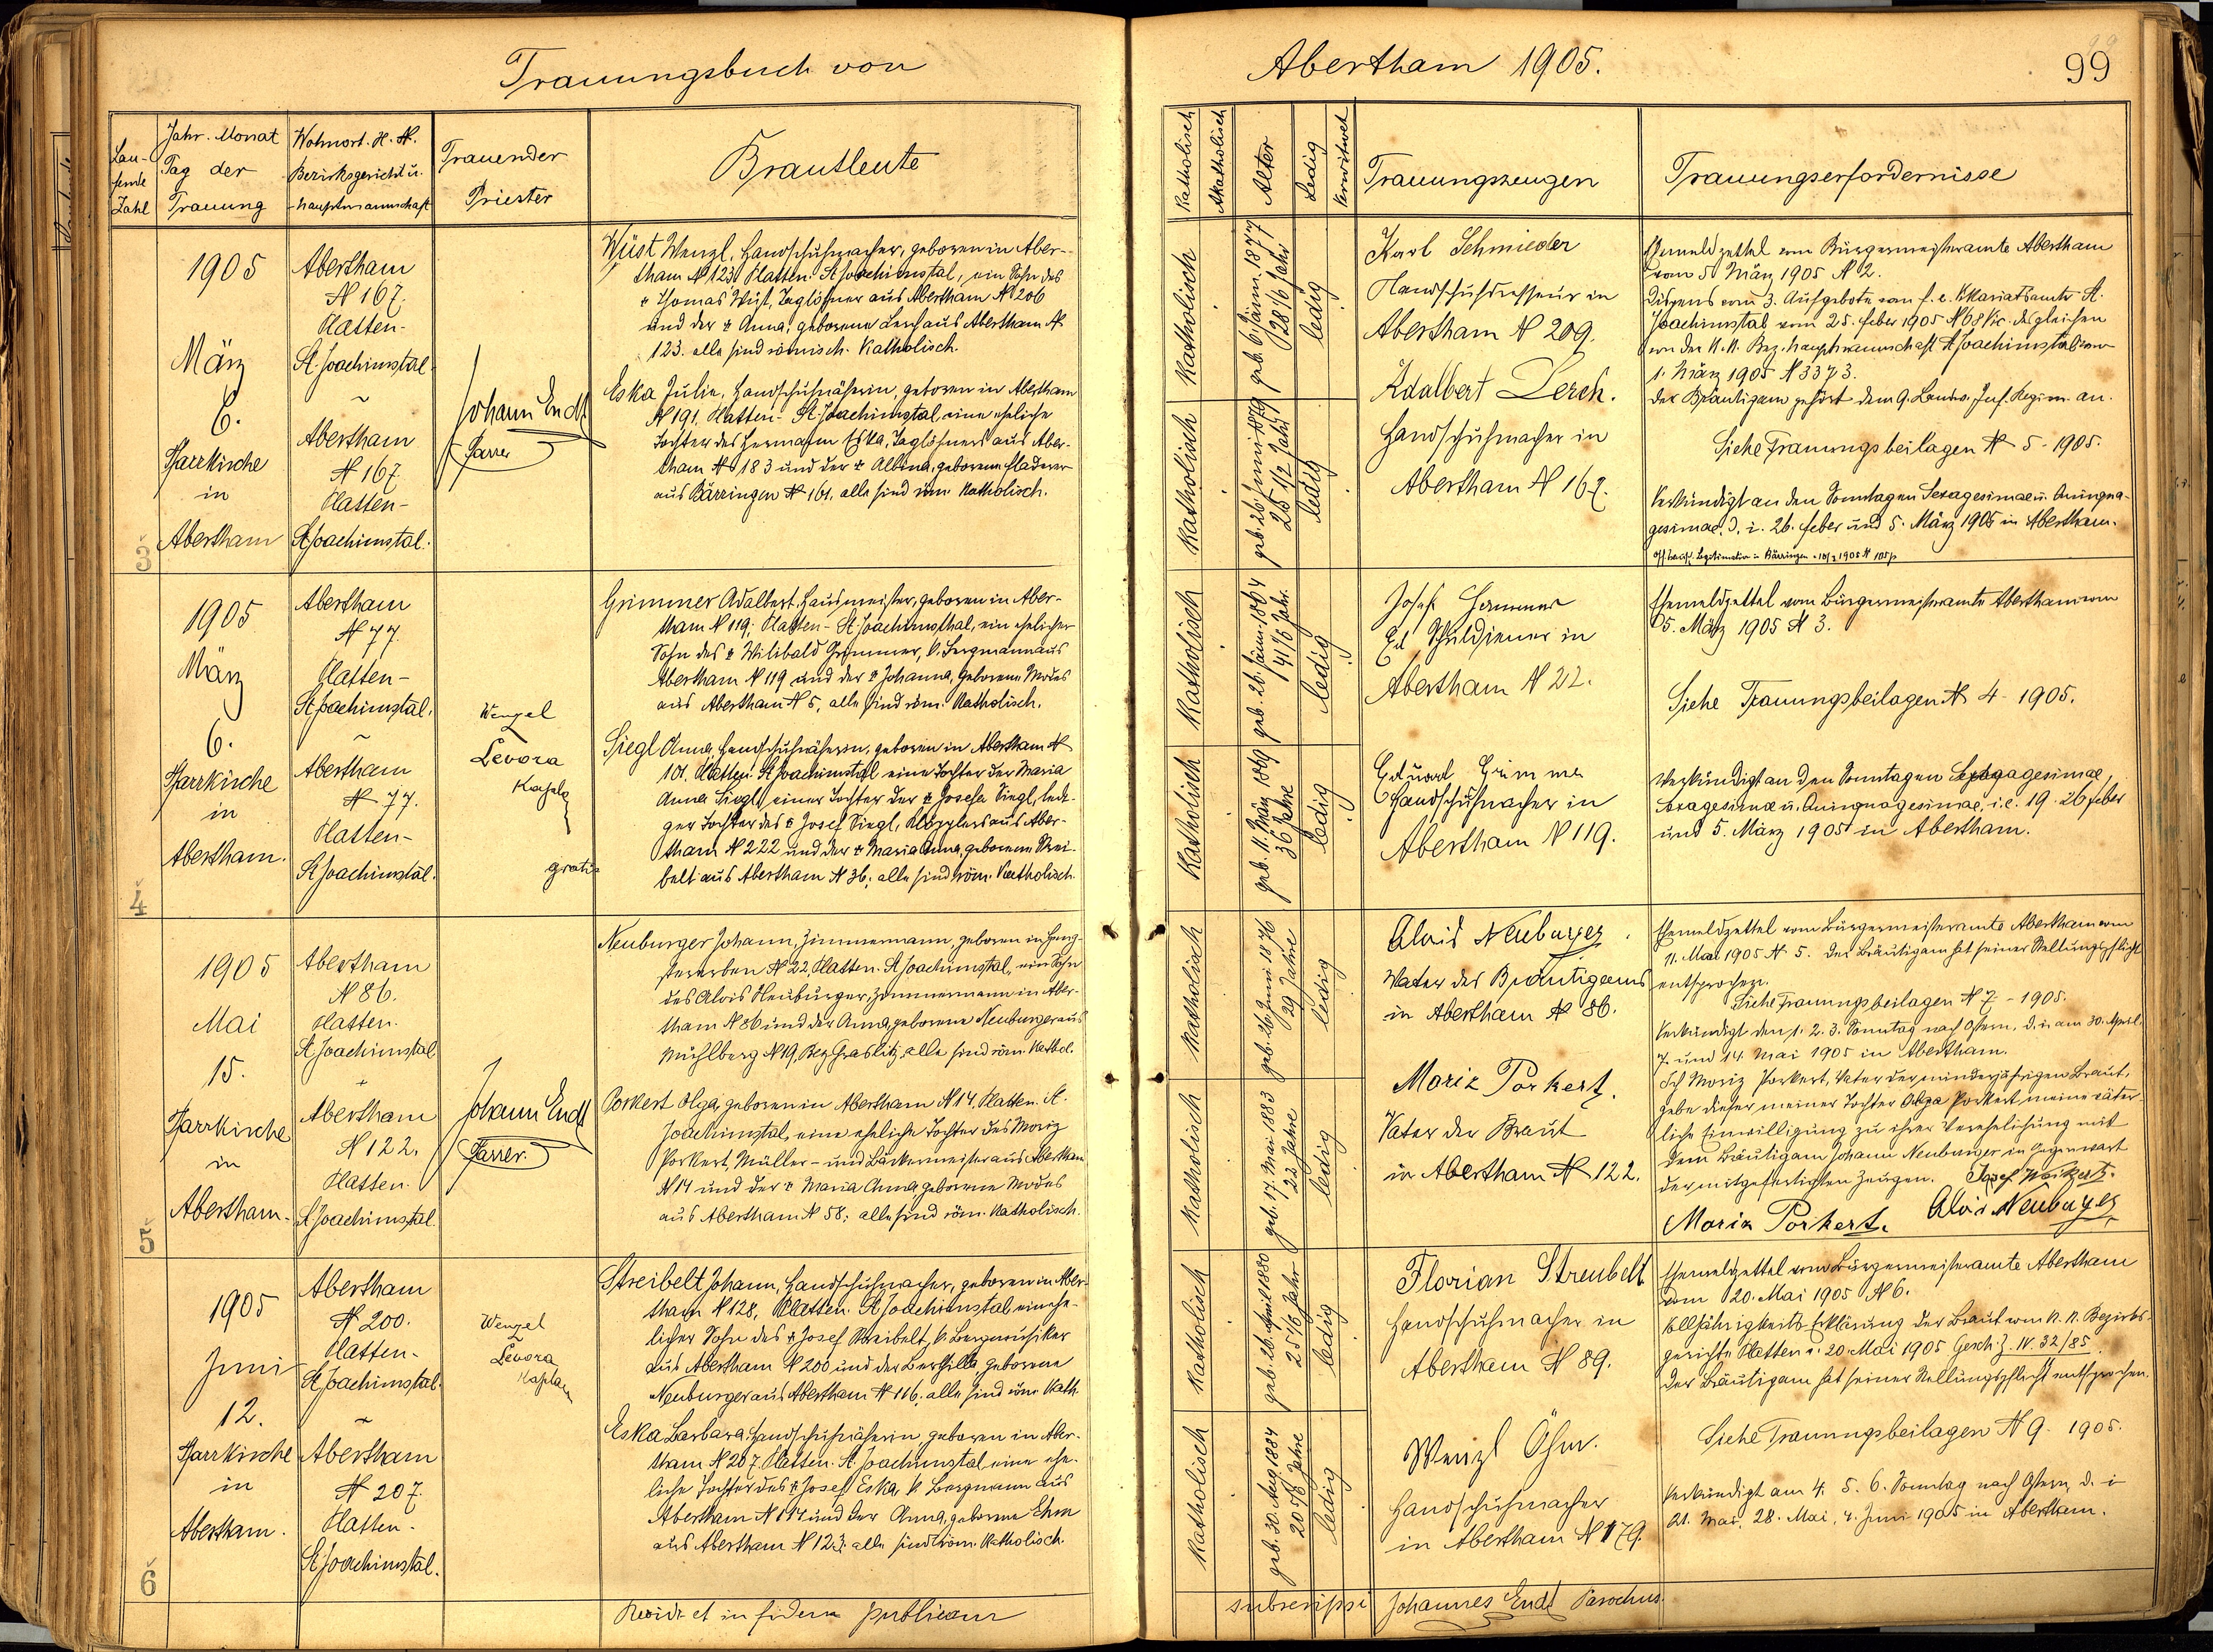 Trauungsbuch von
Abertham 1905.
99
Lau-
fende
Zahl
Jahr. Monat
Tag der
Trauung
Wohnort. H. N.
Bezirksgericht u.
-hauptmannschaft
Trauender
Priester
Brautleute
Katholisch
Akatholisch
Alter
Ledig
Verwitwet
Trauungszeugen
Trauungserfordernisse
3
1905
März
6.
Pfarrkirche
in
Abertham
Abertham
N 167.
Platten-
St. Joachimstal.
Abertham
N 167
Platten-
St Joachimstal.
Johann Endt
Pfarrer
Wüst Wenzl, Handschuhmacher, geboren in Aber-
tham N 123 Platten. St Joachimstal, ein Sohn des
Thomas Wüst, Taglöhner aus Abertham N 206
und der Anna, geborene Lerch aus Abertham N
123. alle sind römisch. Katholisch.
Eska Julie, Handschuhnäherin, geboren in Abertham
N 191, Platten- St. Joachimstal eine eheliche
Tochter des Hermann Eska, Taglöhners aus Aber-
tham N 183 und der Albina, geborene
aus Bärringen N 161. alle sind röm. Katholisch.
Katholisch
geb. 6. Jänn. 1877
28 1/6 Jahr
ledig
Katholisch
geb. 26. Juni 1879
25 1/2 Jahr
ledig
Karl Schmieder
Handschuhdresseur in
Abertham N 209.
Adalbert Lerch.
Handschuhmacher in
Abertham N 167.
Ehemeldzettel vom Bürgermeisteramte Abertham
vom 5. März 1905 N 2.
Dispens vom 3. Aufgebote vom f. e. Vikariatsamte St.
Joachimstal vom 25. Feber 1905 N 68 Vic. desgleichen
von der K. K. Bez. hauptmannschaft St Joachimstal vom
1. März 1905 N 3373.
Der Bräutigam gehört dem 9. Landw. Inf. Regim. an.
Siehe Trauungsbeilagen N 5-1905.
Verkündigt an den Sonntagen Sexagesimae u. Quinqua-
gesimae. d. i. 26. Feber und 5. März 1905 in Abertham.
Legitimation in Bärringen 1905 N 105
4
1905
März
6.
Pfarrkirche
in
Abertham.
Abertham
N 77.
Platten-
St Joachimstal.
Abertham
N 77.
Platten-
St Joachimstal.
Wenzel
Levora
Kaplan
gratis
Grimmer Adalbert, Hausmeister, geboren in Aber-
tham N 119; Platten- St. Joachimsthal, ein ehelicher
Sohn des Wilibald Grimmer, k. Bergmann aus
Abertham N 119 und der Johanna, geborene Modes
aus Abertham N 5, alle sind röm. Katholisch.
Siegl Anna, Handschuhnäherin, geboren in Abertham N
101. Platten- St Joachimstal eine Tochter der Maria
Anna Siegl, einer Tochter der Josefa Siegl, ledi-
ger Tochter des Josef Siegl, Klöpplers aus Aber-
tham N 222 und der Maria Anna, geborene Strei-
belt aus Abertham N 36; alle sind röm. Katholisch.
Katholisch
geb. 26. Jänn. 1864
41 1/6 Jahr.
ledig
Katholisch
geb. 11. März 1869
36 Jahre
ledig
Josef Hammer
Schuldiener in
Abertham N 22.
Eduard Grimmer
Handschuhmacher in
Abertham N 119.
Ehemeldzettel vom Bürgermeisteramte Abertham vom
5. März 1905 N 3.
Siehe Trauungsbeilagen N 4-1905.
Verkündigt an den Sonntagen
Sexagesimae u. Quinquagesimae, i. e. 19. 26 Feber
und 5. März 1905 in Abertham.
5
1905
Mai
15.
Pfarrkirche
in
Abertham.
Abertham
N 86.
Platten.
St Joachimstal
Abertham
N 122.
Platten.
St Joachimstal.
Johann Endt
Pfarrer.
Neuburger Johann, Zimmermann, geboren in Heng-
stererben N 22, Platten. St Joachimstal, ein Sohn
des Alois Neuburger, Zimmermann in Aber-
tham N 86 und der Anna, geborene Neuburger aus
Mühlberg N 19, Bez Graslitz, alle sind röm. Kathol.
Porkert Olga, geboren in Abertham N 14. Platten. St.
Joachimstal, eine eheliche Tochter des Moriz
Porkert, Müller- und Bäckermeister aus Abertham
N 14 und der Maria Anna geborene Modes
aus Abertham N 58; alle sind röm. Katholisch.
Katholisch
geb. 26. Juni 1876
29 Jahre
ledig
Katholisch
geb. 17. Mai 1883
22 Jahre
ledig
Alois Neuburger.
Vater des Bräutigams
in Abertham N 86.
Moriz Porkert.
Vater der Braut
in Abertham N 122.
Ehemeldzettel vom Bürgermeisteramte Abertham vom
11. Mai 1905 N 5. Der Bräutigam hat seiner Stellungspflicht
entsprochen.
Siehe Trauungsbeilagen N 7-1905.
Verkündigt den 1. 2. 3. Sonntag nach Ostern, d. i. am 30. April.
7. und 14. Mai 1905 in Abertham.
Ich Moriz Porkert, Vater der minderjährigen Braut,
gebe dieser meiner Tochter Olga Porkert meine väter-
liche Einwilligung zu ihrer Verehelichung mit
dem Bräutigam Johann Neuburger in Gegenwart
der mitgefertigten Zeugen. Josef
Moriz Porkert. Alois Neuburger
6
1905
Juni
12.
Pfarrkirche
in
Abertham.
Abertham
N 200.
Platten-
St Joachimstal.
Abertham
N 207.
Platten-
St Joachimstal.
Wenzel
Levora
Kaplan
Streibelt Johann, Handschuhmacher, geboren in Aber-
tham N 128, Platten. St Joachimstal, ein ehe-
licher Sohn des Josef Streibelt, k. Bergmusiker
aus Abertham N 200 und der Berthilla geborene
Neuburger aus Abertham N 116; alle sind röm. Kath.
Eska Barbara, Handschuhnäherin geboren in Aber-
tham N 207. Platten. St Joachimstal eine ehe-
liche Tochter des Josef Eska k Bergmann aus
Abertham N 114 und der Anna, geborene Ehm
aus Abertham N 123; alle sind röm. Katholisch.
Katholisch
geb. 26. April 1880
25 1/6 Jahr
ledig
Katholisch
geb. 30. Aug. 1884
20 7/8 Jahre
ledig
Florian Streubelt
Handschuhmacher in
Abertham N 89.
Wenzl Öhm.
Handschuhmacher
in Abertham N 179.
Ehemeldzettel vom Bürgermeisteramte Abertham
vom 20. Mai 1905 N 6.
Volljährigkeits-Erklärung der Braut vom K. K. Bezirks-
gerichte Platten v. 20. Mai 1905 Gesch. Z. IV. 32/85.
Der Bräutigam hat seiner Stellungspflicht entsprochen.
Siehe Trauungsbeilagen N 9-1905.
Verkündigt am 4. 5. 6. Sonntag nach Ostern, d. i
21. Mai, 28. Mai, 4. Juni 1905 in Abertham.
et in fidem publicam
subscripsi Johannes Endt Parochus.